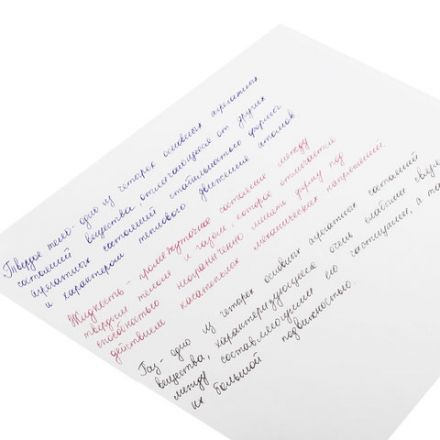 Твердое тело - одно из четырех основных агрегатных
состояний вещества, отличающееся от других
агрегатных состояний стабильностью формы
и характером теплового движения атомов
Жидкость - промежуточное состояние между
твердым телом и газом, которое отличается
способностью неограниченно менять форму под
действием касательных механических напряжений.
Газ - одно из четырех основных агрегатных состояний
вещества, характеризующееся очень слабыми
между составляющими его частицами, а
их большой подвижностью.